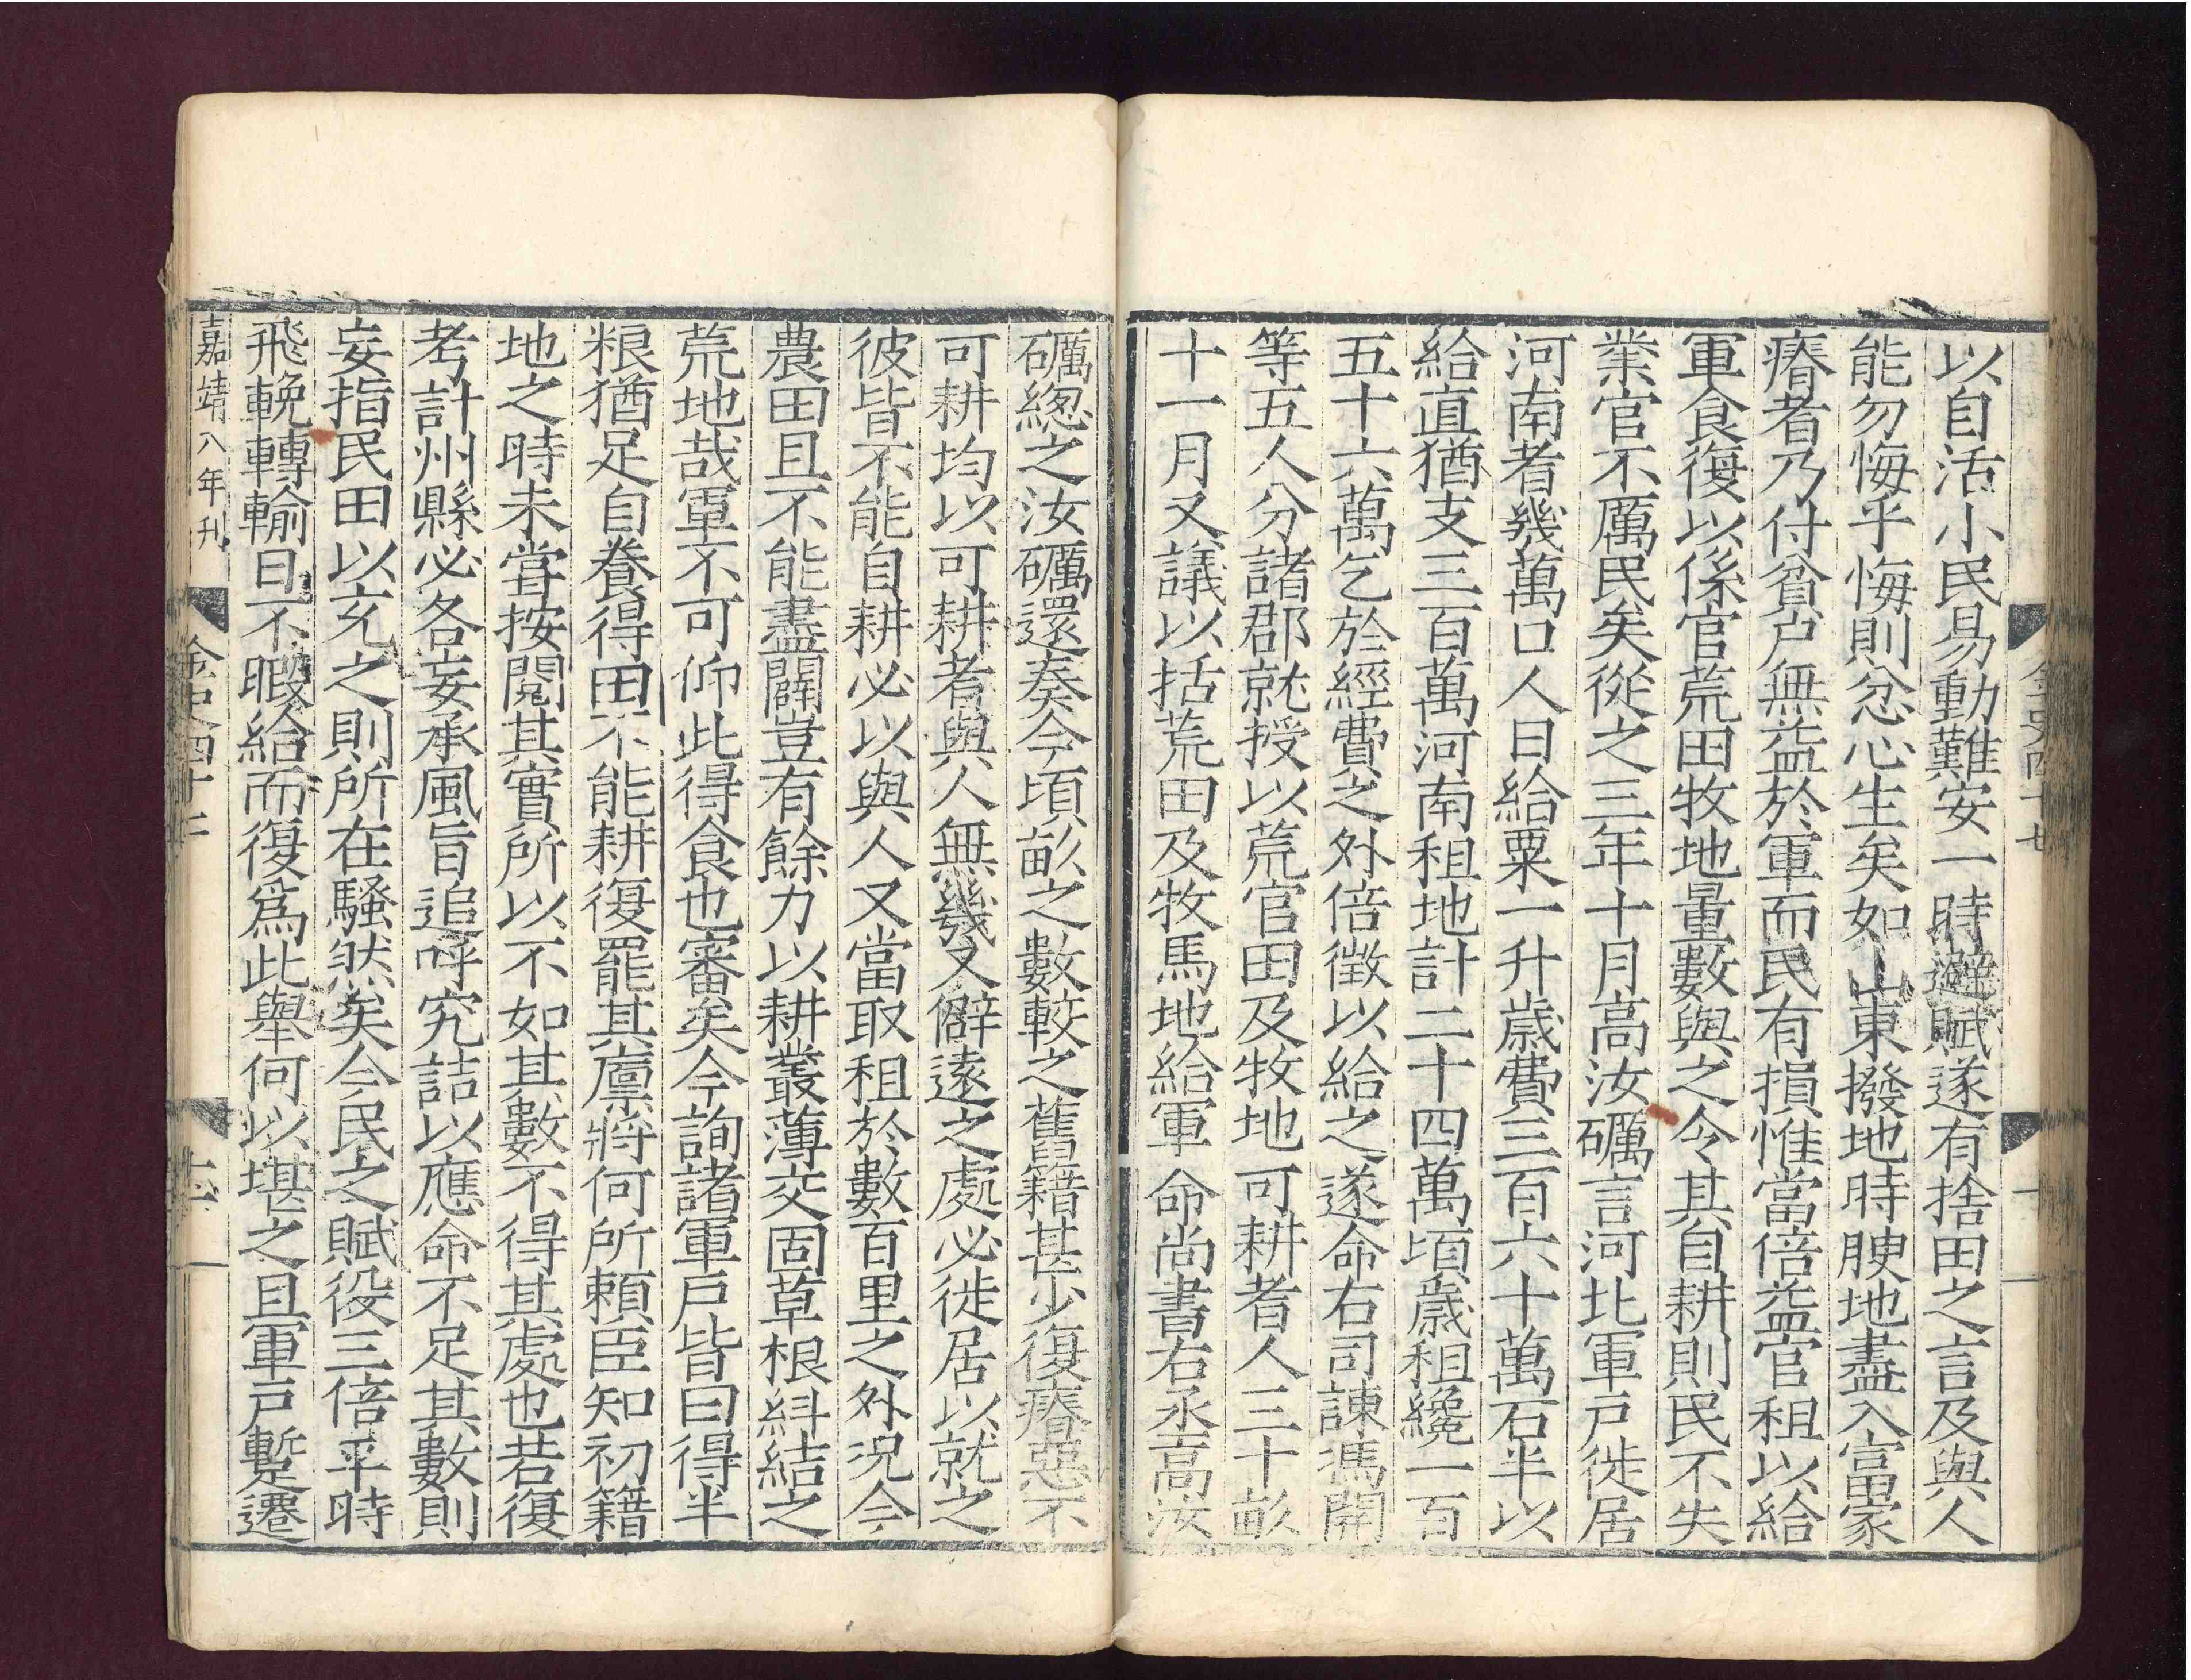 以自活小民易動難安一時避賦遂有捨田之言及與人
能勿悔乎悔則忿心生矣如山東撥地時腴地盡入富家
瘠者乃付貧户無益於軍而民有損惟當倍益官租以給
軍食復以係官荒田牧地量數與之令其自耕則民不失
業官不厲民矣從之三年十月高汝礪言河北軍戸徙居
河南者幾萬口人日給粟一升歲費三百六十萬石半以
給直猶支三百萬河南租地計二十四萬頃歲租纔一百
五十六萬乞於經費之外倍徵以給之遂命右司諫馮開
等五人分諸郡就授以荒官田及牧地可耕者人三十畝
十一月又議以括荒田及牧馬地給軍命尚書右丞高汝
礪緫之汝礪還奏今頃畝之數較之舊籍甚少復瘠惡不
可耕均以可耕者與人無幾又僻遠之處必徙居以就之
彼皆不能自耕必以與人又當取租於數百里之外況今
農田且不能盡闢豈有餘力以耕叢薄交固草根糾結之
荒地哉軍不可仰此得食也審矣今詢諸軍戸皆曰得半
粮猶足自養得田不能耕復罷其廩將何所賴臣知初籍
地之時未嘗按閱其實所以不如其數不得其處也若復
考計州縣必各妄承風旨追呼究詰以應命不足其數則
妄指民田以充之則所在騷然矣今民之賦役三倍平時
飛輓轉輸日不暇給而復爲此舉何以堪之且軍戸蹔遷
嘉靖八年刊
金史四十二